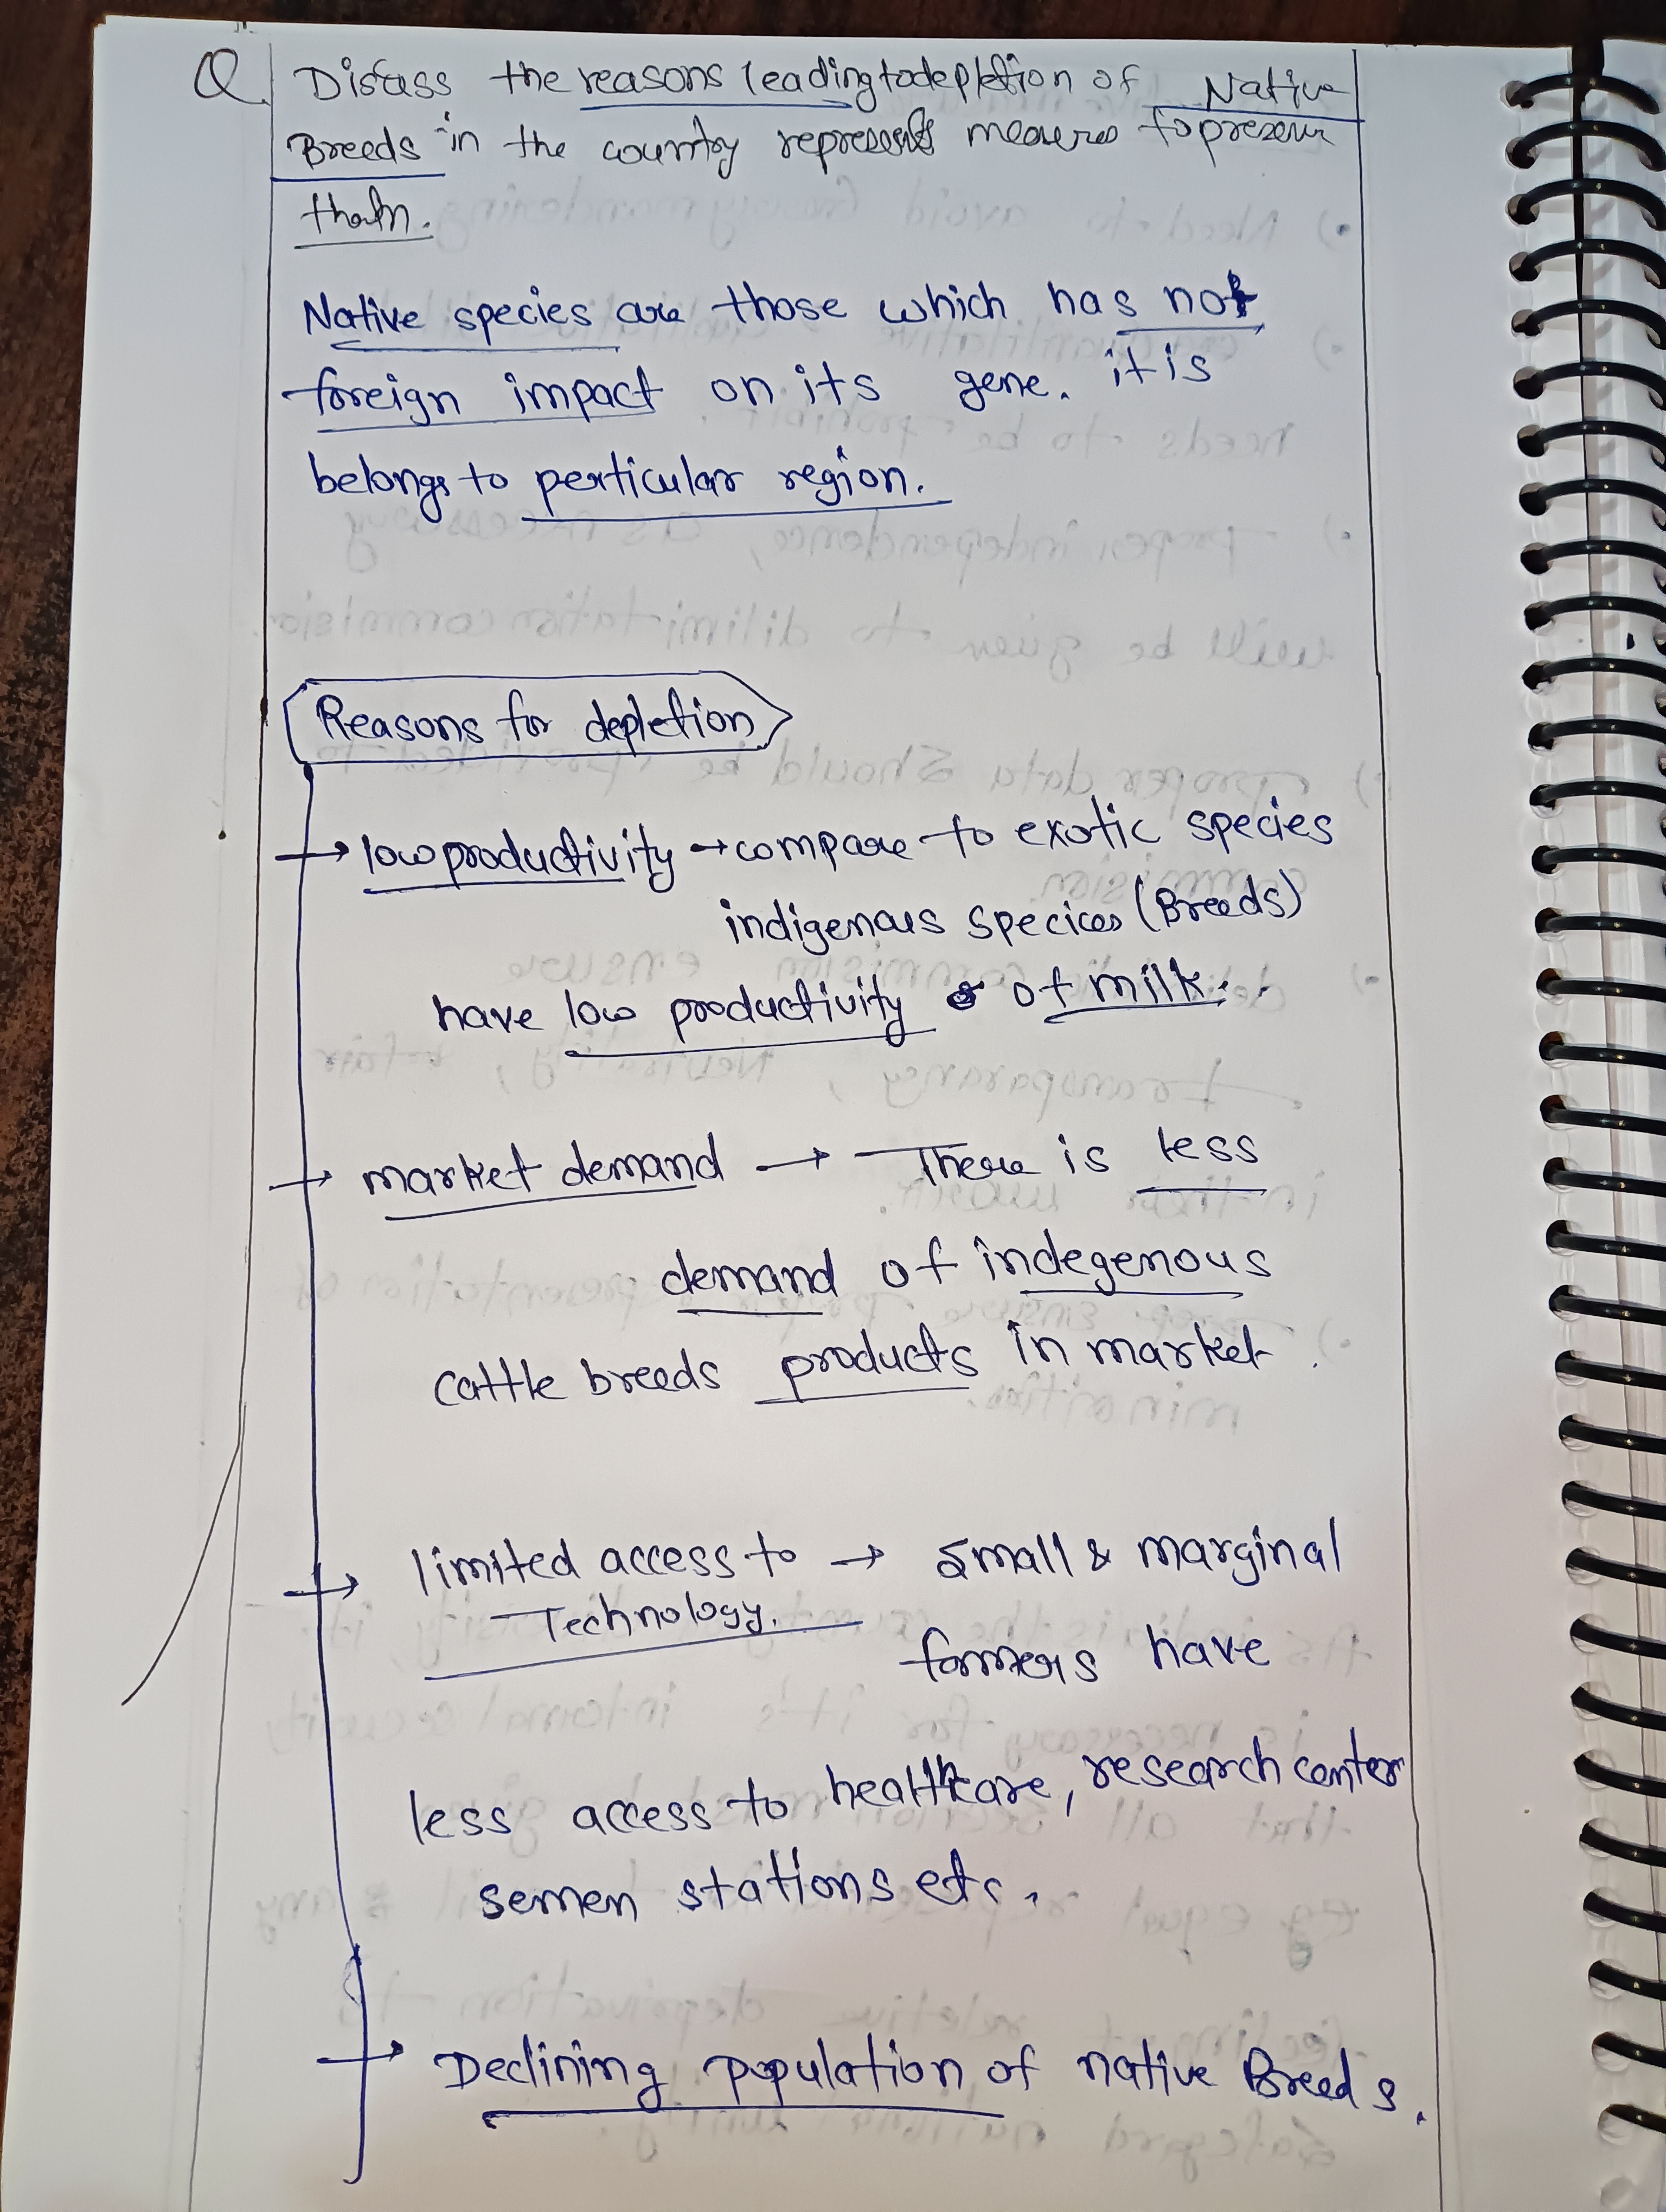 Q. Disfass the reasons leading to depletion of Native
Breeds in the country represents measures to preserve
them.
Native species are those which has not
foreign impact on its gene. it is
belongs to perticular region.
Reasons for depletion
→ low productivity → compare to exotic species
indigenous species (Breeds)
have low productivity of milk.
→ market demand → There is less
demand of indegenous
cattle breeds products in market.
→ limited access to → Small & marginal
Technology.
farmers have
less access to healthcare, research center
semen stations etc.
→ Declining population of native Breeds.